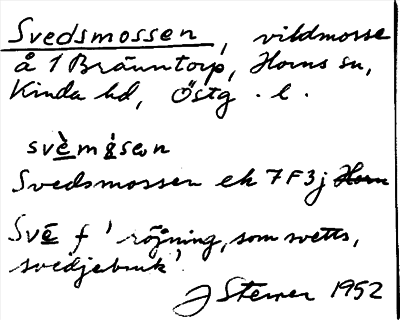 Svedsmossen, vildmosse
å 1 Bräuntorp, Horns sn,
Kinda hd, Östg. l.
svèmɡ́sen
Svedsmossen ek 7F3j
Své f 'röjning, som svetts,
svedjebruk'
J Sterner 1952